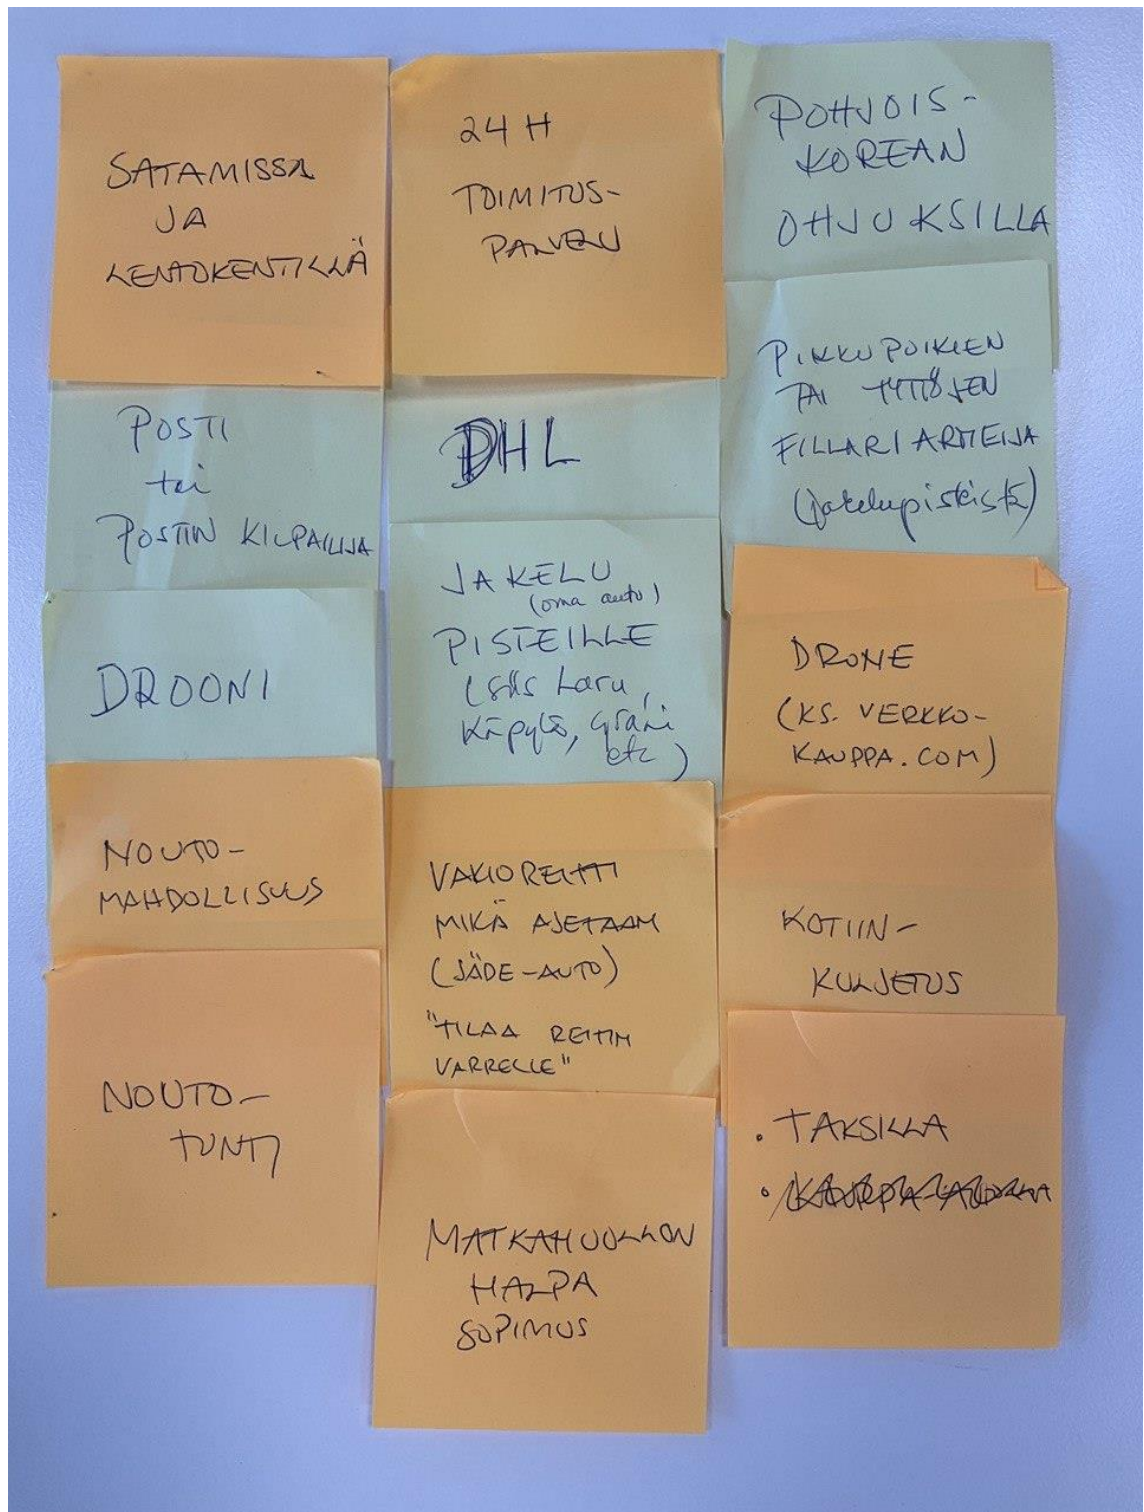 SATAMISSA
JA
LENTOKENTILLÄ
POSTI
tai
POSTIN KILPAILIJA
DROONI
NOUTO-
MAHDOLLISUUS
NOUTO-
TUNTI
24 H
TOIMITUS-
PALVELU
DHL
JAKELU
(oma auto)
PISTEILLE
(siis Laru,
Käpylä, Grani
etc)
VAKIOREITTI
MIKÄ AJETAAN
(JÄDE-AUTO)
"TILAA REITIN
VARRELLE"
MATKAHUOLLON
HALPA
SOPIMUS
POHJOIS-
KOREAN
OHJUKSILLA
PIKKUPOIKIEN
TAI TYTTÖJEN
FILLARIARMEIJA
(jakelupisteistä)
DRONE
(KS. VERKKO-
KAUPPA.COM)
KOTIIN-
KULJETUS
• TAKSILLA
•